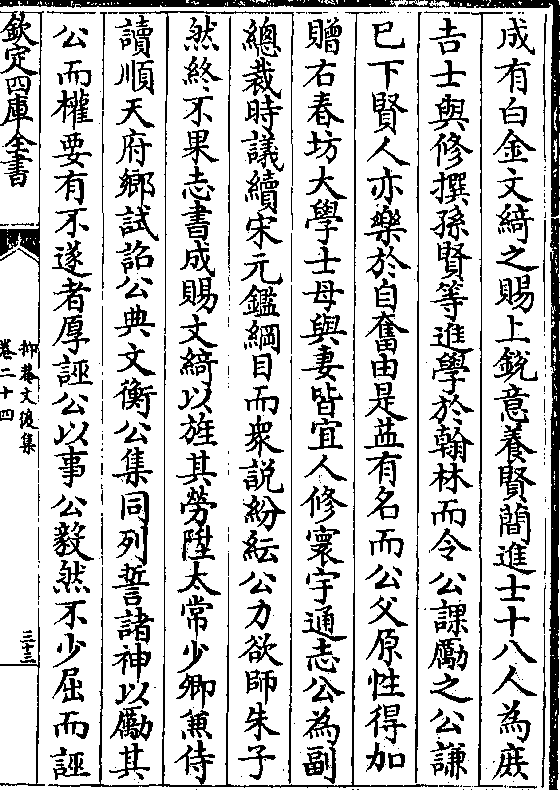 成有白金文綺之賜上銳意養賢蕳進士十八人為庻
吉士與修撰孫賢等進學於翰林而令公課勵之公謙
已下賢人亦樂於自奮由是益有名而公父原性得加
贈右春坊大學士母與妻皆宜人修寰宇通志公為副
總裁時議續宋元鑑綱目而衆説紛紜公力欲師朱子
然終不果志書成賜文綺以旌其勞陞太常少卿兼侍
讀順天府鄉試詔公典文衡公集同列誓諸神以勵其
公而權要有不遂者厚誣公以事公毅然不少屈而誣
欽定四庫全書
抑菴文後集
卷二十四
三十三